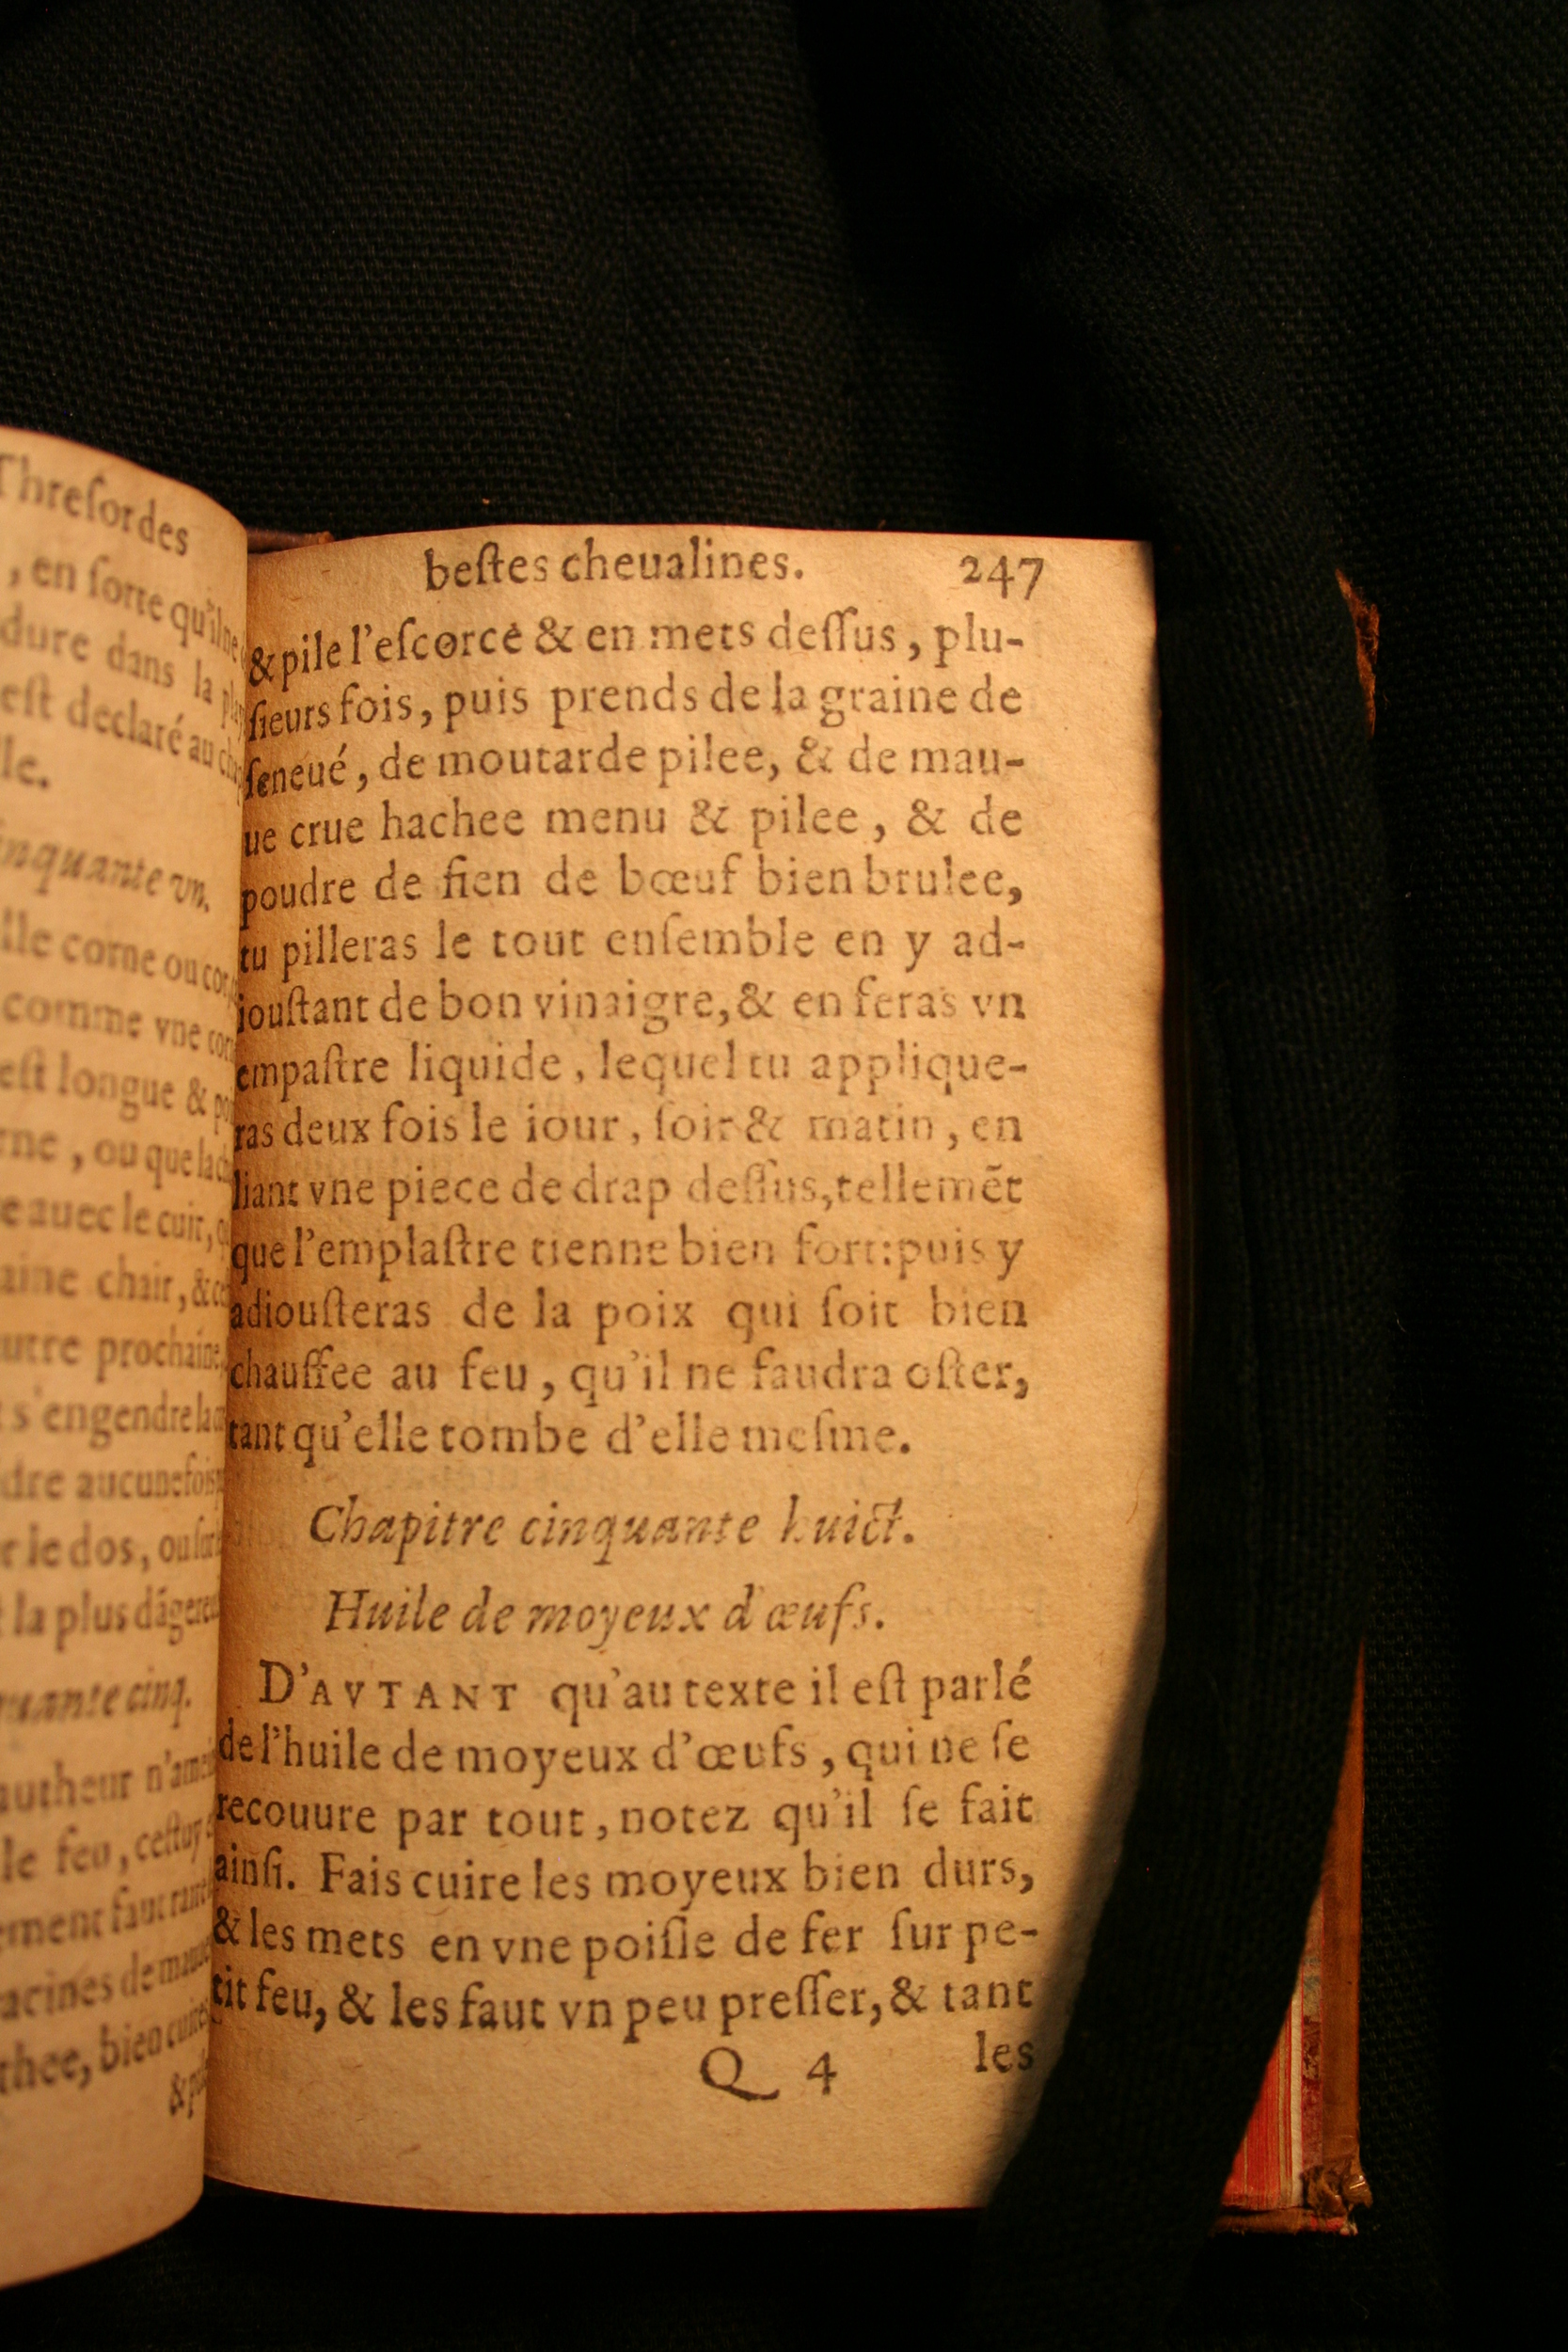 Threſor des
, en ſorte qu'il ne
dure dans la
eſt declaré au
le.
inquante vn.
lle corne ou
comme vne
eſt longue &
rne , ou que la
e auec le cuir,
aine chair, &
utre prochaine
s'engendre la
dre aucunefois
r le dos, ou
la plus dãgereu
uante cinq.
autheur n'
le feu, ceſtuy
ement faut
acines de
thee, bien
beſtes cheualines. 247
& pile l'eſcorce & en mets deſſus , plu-
ſieurs fois, puis prends de la graine de
ſeneué, de moutarde pilee, & de mau-
ue crue hachee menu & pilee , & de
poudre de fien de bœuf bien brulee,
tu pilleras le tout enſemble en y ad-
iouſtant de bon vinaigre, & en feras vn
empaſtre liquide, lequel tu applique-
ras deux fois le iour, ſoir & matin, en
liant vne piece de drap deſſus, tellemẽt
que l'emplaſtre tienne bien fort: puis y
adiouſteras de la poix qui ſoit bien
chauffee au feu, qu'il ne faudra oſter,
tant qu'elle tombe d'elle meſme.
Chapitre cinquante huict.
Huile de moyeux d'œufs.
D'AVTANT qu'au texte il eſt parlé
de l'huile de moyeux d'œufs, qui ne ſe
recouure par tout, notez qu'il ſe fait
ainſi. Fais cuire les moyeux bien durs,
& les mets en vne poiſle de fer ſur pe-
tit feu, & les faut vn peu preſſer, & tant
Q 4 les